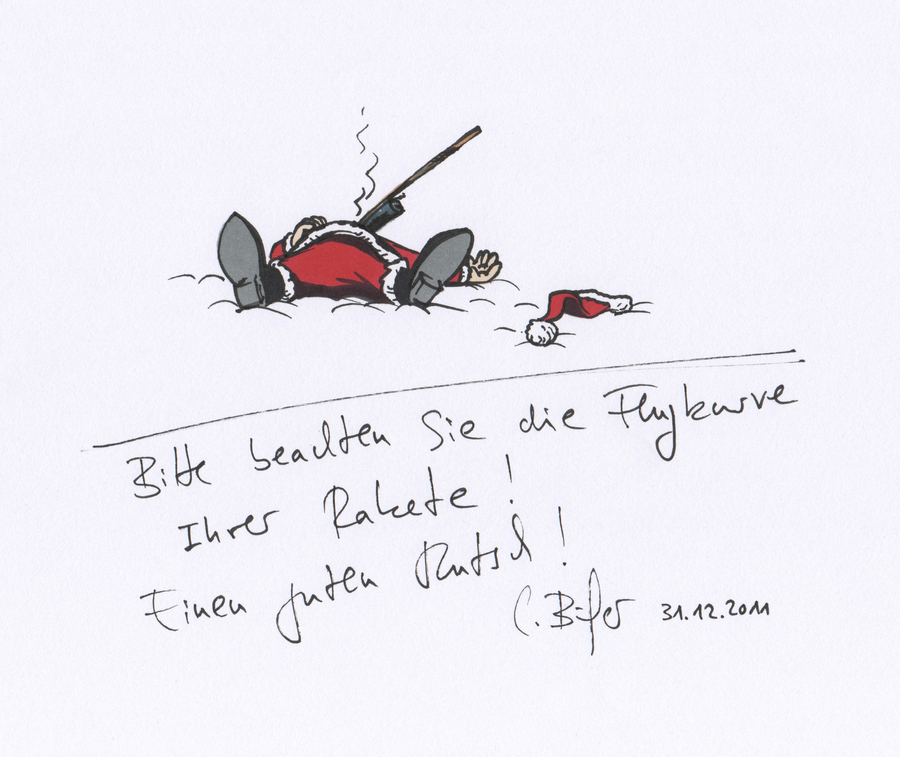 Bitte beachten Sie die Flugkurve
Ihrer Rakete!
Einen guten Rutsch!
31.12.2011